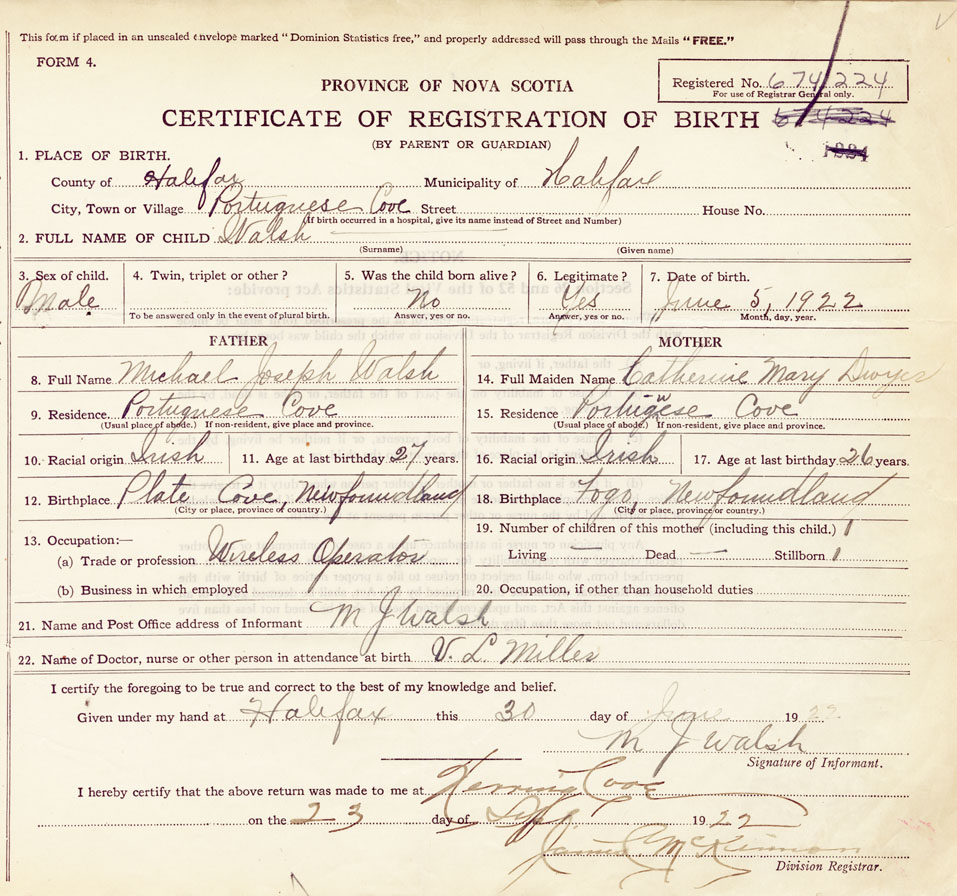 This form if placed in an unsealed envelope marked "Dominion Statistics free," and properly addressed will pass through the Mails "FREE."
FORM 4.
Registered No. 674224
For use of Registrar General only.
PROVINCE OF NOVA SCOTIA
CERTIFICATE OF REGISTRATION OF BIRTH 674224
(BY PARENT OR GUARDIAN)
1. PLACE OF BIRTH.
County of Halifax Municipality of Halifax
City, Town or Village Portuguese Cove Street House No.
(If birth occurred in a hospital, give its name instead of Street and Number)
2. FULL NAME OF CHILD Walsh
(Surname) (Given name)
3. Sex of child. 4. Twin, triplet or other? 5. Was the child born alive? 6. Legitimate? 7. Date of birth.
Male No Yes June 5, 1922
To be answered only in the event of plural birth. Answer, yes or no. Answer, yes or no. Month, day, year.
FATHER MOTHER
8. Full Name Michael Joseph Walsh 14. Full Maiden Name Catherine Mary Dwyer
9. Residence. Portuguese Cove 15. Residence Portuguese Cove
(Usual place of abode.) If non-resident, give place and province. (Usual place of abode.) If non-resident, give place and province.
10. Racial origin Irish 11. Age at last birthday 27 years. 16. Racial origin Irish 17. Age at last birthday 26 years.
12. Birthplace Plate Cove, Newfoundland 18. Birthplace Fogo, Newfoundland
(City or place, province or country.) (City or place, province or country.)
19. Number of children of this mother (including this child.) 1
13. Occupation:—
Living — Dead — Stillborn 1
(a) Trade or profession Wireless Operator
(b) Business in which employed 20. Occupation, if other than household duties
21. Name and Post Office address of Informant M J Walsh
22. Name of Doctor, nurse or other person in attendance at birth V. L. Miller
I certify the foregoing to be true and correct to the best of my knowledge and belief.
Given under my hand at Halifax this 30 day of June 1922
M J Walsh
Signature of Informant.
I hereby certify that the above return was made to me at Herring Cove
on the 23 day of Sept 1922
James McKinnon
Division Registrar.